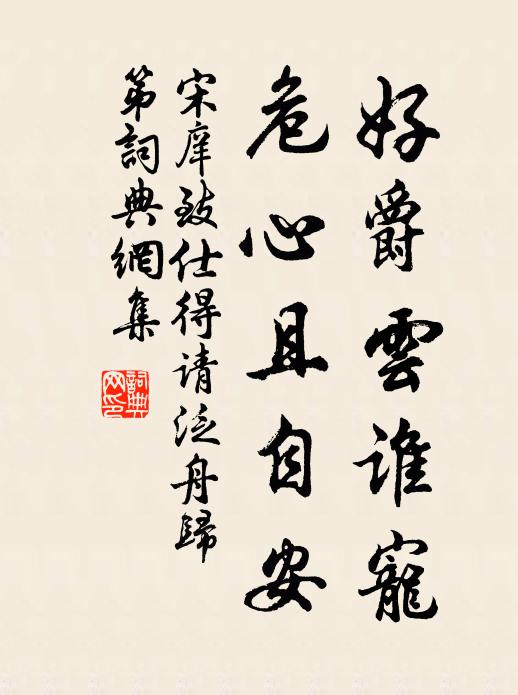 好爵雲誰寵
危心且自安
宋庠致仕得請泛舟歸
第詞典網集
詞典
网印